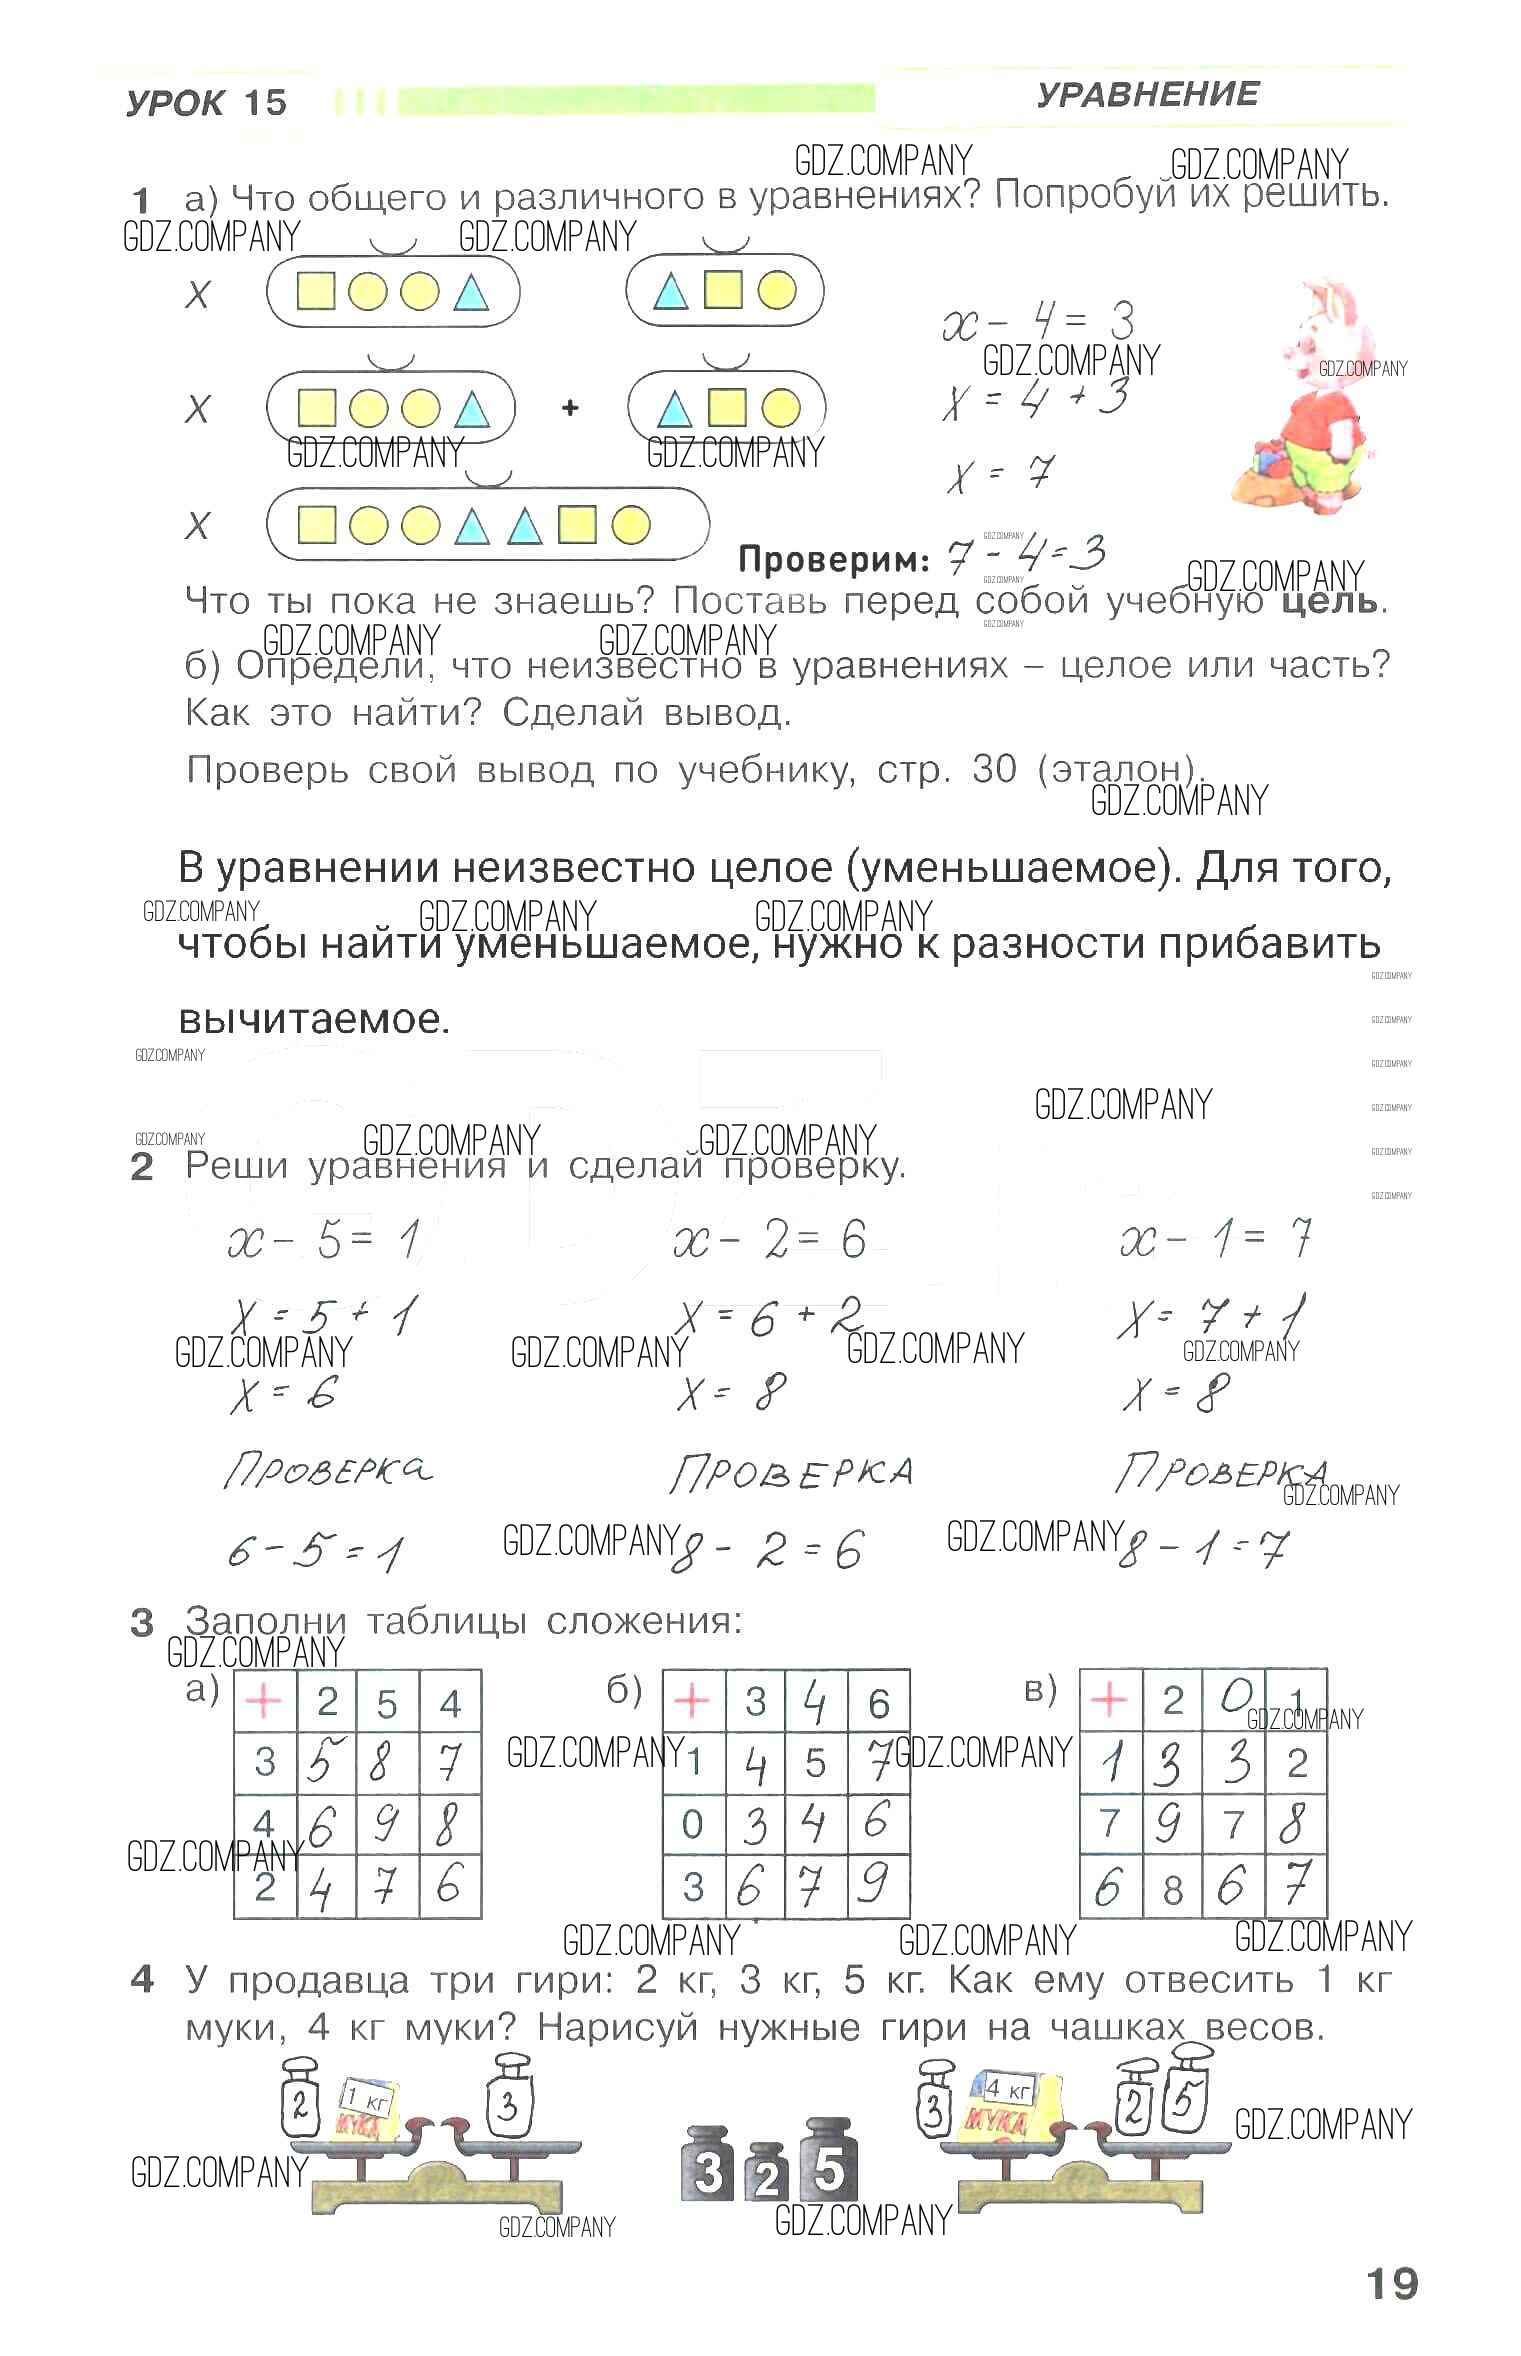 УРОК 15
УРАВНЕНИЕ
GDZ.COMPANY GDZ.COMPANY
1 а) Что общего и различного в уравнениях? Попробуй их решить.
GDZ.COMPANY GDZ.COMPANY
X
x - 4 = 3
GDZ.COMPANY GDZ.COMPANY
X + X = 4 + 3
GDZ.COMPANY GDZ.COMPANY
X = 7
X
Проверим: 7 - 4 = 3
GDZ.COMPANY
GDZ.COMPANY GDZ.COMPANY
Что ты пока не знаешь? Поставь перед собой учебную цель.
GDZ.COMPANY
GDZ.COMPANY GDZ.COMPANY
б) Определи, что неизвестно в уравнениях – целое или часть?
Как это найти? Сделай вывод.
Проверь свой вывод по учебнику, стр. 30 (эталон).
GDZ.COMPANY
В уравнении неизвестно целое (уменьшаемое). Для того,
GDZ.COMPANY GDZ.COMPANY GDZ.COMPANY
чтобы найти уменьшаемое, нужно к разности прибавить
GDZ.COMPANY
вычитаемое.
GDZ.COMPANY
GDZ.COMPANY
GDZ.COMPANY
GDZ.COMPANY GDZ.COMPANY
GDZ.COMPANY GDZ.COMPANY GDZ.COMPANY
GDZ.COMPANY
2 Реши уравнения и сделай проверку.
GDZ.COMPANY
x - 5 = 1 x - 2 = 6 x - 1 = 7
X = 5 + 1 X = 6 + 2 X = 7 + 1
GDZ.COMPANY GDZ.COMPANY GDZ.COMPANY GDZ.COMPANY
X = 6 X = 8 X = 8
ПРОВЕРКА ПРОВЕРКА ПРОВЕРКА
GDZ.COMPANY
6 - 5 = 1 GDZ.COMPANY 8 - 2 = 6 GDZ.COMPANY 8 - 1 = 7
3 Заполни таблицы сложения:
GDZ.COMPANY
а) + 2 5 4 б) + 3 4 6 в) + 2 0 1
GDZ.COMPANY
3 5 8 7 GDZ.COMPANY 1 4 5 7 GDZ.COMPANY 1 3 3 2
4 6 9 8 0 3 4 6 7 9 7 8
GDZ.COMPANY
2 4 7 6 3 6 7 9 6 8 6 7
GDZ.COMPANY GDZ.COMPANY GDZ.COMPANY
4 У продавца три гири: 2 кг, 3 кг, 5 кг. Как ему отвесить 1 кг
муки, 4 кг муки? Нарисуй нужные гири на чашках весов.
2 1 кг МУКА 3 3 4 кг МУКА 2 5
GDZ.COMPANY
GDZ.COMPANY 3 2 5
GDZ.COMPANY GDZ.COMPANY
19